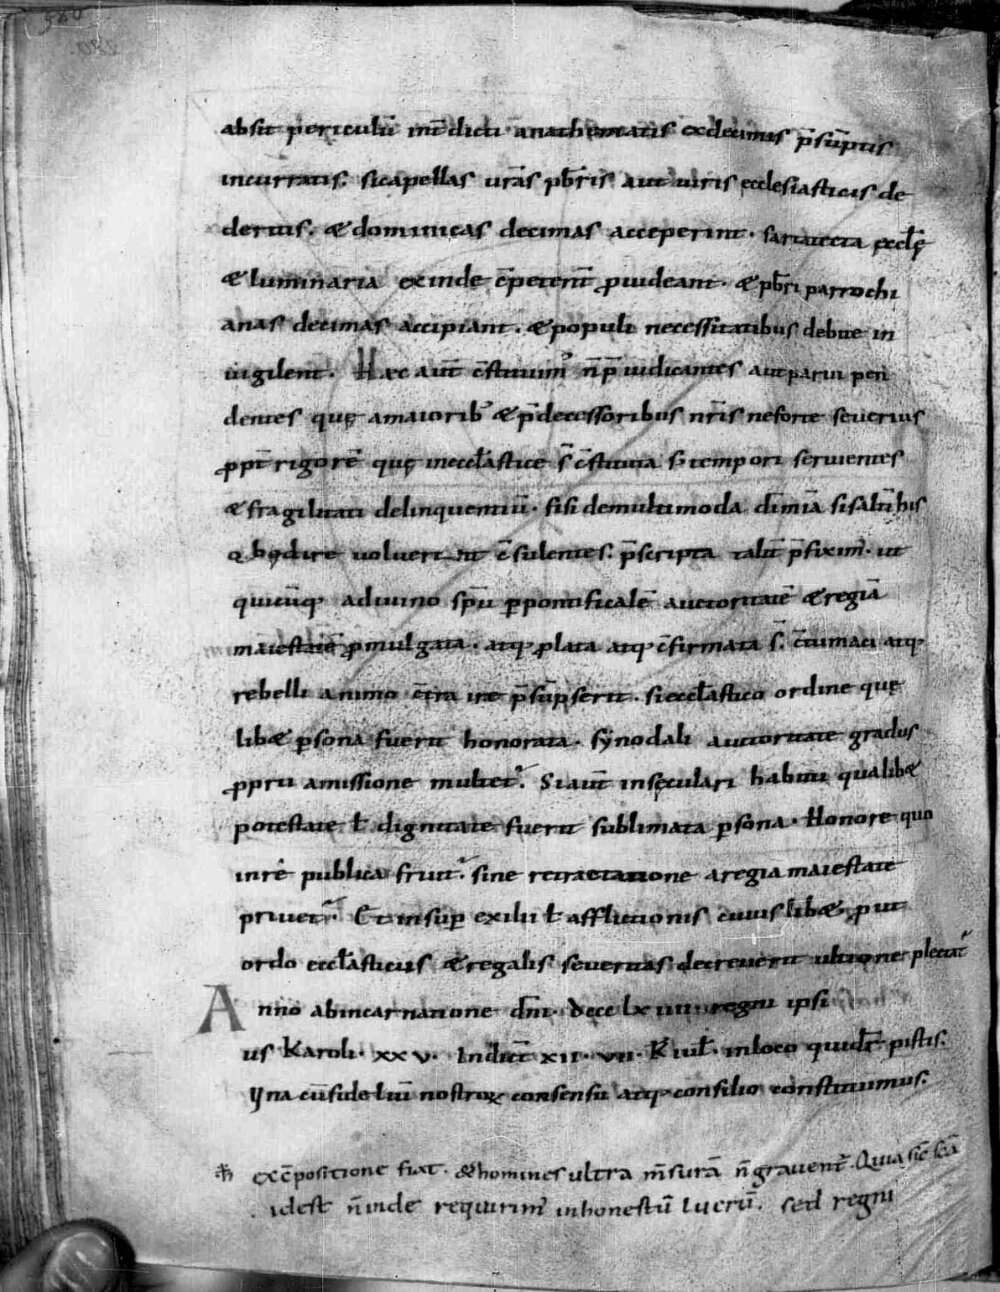 absit periculū int̄dicti anathematis exdecimis p̄sūptis
incurratis. sicapellas urās p̄bris aut uiris ecclesiasticis de
deritis. & dominicas decimas acceperint. sartatecta ęccłę
& luminaria exinde c̄petent̄ ꝓuideant. & p̄bri parrochi
anas decimas accipiant. & populi necessitatibus debite in
uigilent. Hæc aut̄ c̄stituim᾽ n̄ p̄iudicantes aut parui pen
dentes quę amaiorib᾽ & p̄decessoribus nr̄is neforte seuerius
ꝓpt̄ rigorē quę inecclāstice s̄ c̄stituta s; tempori seruientes
& fragilitati delinquentiū. sisi demultimoda dn̄i mīa sisaltī his
obędire uoluerint c̄sulentes. p̄scripta talit̄ p̄fixim᾽. ut
quicūq; adiuino sp̄u ꝑpontificalē auctoritatē & regiā
maiestatē ꝓmulgata. atq; ꝓlata atq; c̄firmata s̄. c̄tumaci atq;
rebelli animo c̄tra ire p̄sūpserit. si ecclāstico ordine quę
lib& ꝑsona fuerit honorata. synodali auctoritate gradus
ꝓprii amissione multet᾽. Si aut̄ insęculari habitu qualib&
potestate ł dignitate fuerit sublimata ꝑsona. Honore quo
inrē publica fruit᾽. sine retractatione aregia maiestate
priuet᾽. Et insup̄ exilii ł afflictionis cuiuslib& ꝓut
ordo ecclāsticus & regalis seueritas decreuerit ultione plectat᾽
Anno abincarnatione dn̄i. dccclxiiii. regni ipsi
us Karoli. xxv. Indict̄ xii. vii. K iuł. inloco qui dr̄ pistis.
Hæc quæ secuntur capitula
una cū fideliū nostroꝝ consensu atq; consilio constituimus.
exc̄positione fiat. & homines ultra m̄surā n̄ grauent᾽. Quia sic̄ scā
idest n̄ inde requirim᾽ inhonestū lucrū. sed regni